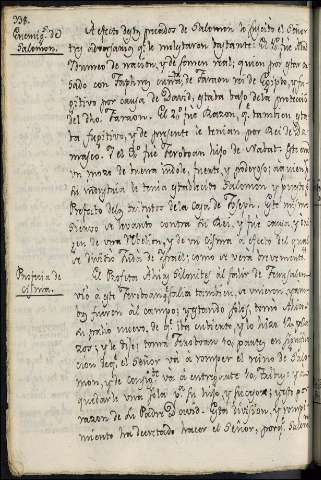 338.
Enemig.s de
Salomon.
A efecto destos pecados de Salomon le suscitó el Señor
tres adversarios q.e le molestaron bastante. El 1.º fue Adad
Idumeo de nacion, y de semen real; quien por estar ca-
sado con Taphnes cuñada de Faraon rei de Egipto, y fu-
gitivo por causa de David, estaba bajo de la proteccion
del dho. Faraon. El 2.º fue Razon, q.e tambien esta-
ba fugitivo, y de presente le tenian por Rei de Da-
masco. Y el 3.º fue Jeroboan hijo de Nabat. Este era
un mozo de buena indole, fuerte, y poderoso; a quien
su industria le tenia Salomon y puesto
Prefecto de los tributos de la casa de Josef. Este mismo
siervo se levantó contra su Rei, y fue causa, y ori-
gen de una rebelion, y de un cisma a efecto del qual
se dividió Judá de Ysrael; como se verá brevemente.
Profecia de
cisma.
El Profeta Ahias Silonites al salir de Jerusalen
vió a este Jeroboan q.e salia tambien, se unieron, y jun-
tos fueron al campo; y estando solos, tomó Ahias
su palio nuevo, de q.e iba cubierto, y lo hizo 12. peda-
zos; y le dijo: toma Jeroboan 10. partes, en significa-
cion de q.e el Señor vá à romper el reino de Salo-
mon, y de vá à entregarte 10. Tribus; y
quedarse una sola p.a su hijo, y sucesores; y esto por
razon de su Padre David. Esta division, y rompi-
miento ha decretado hacer el Señor, porq.e Salomon